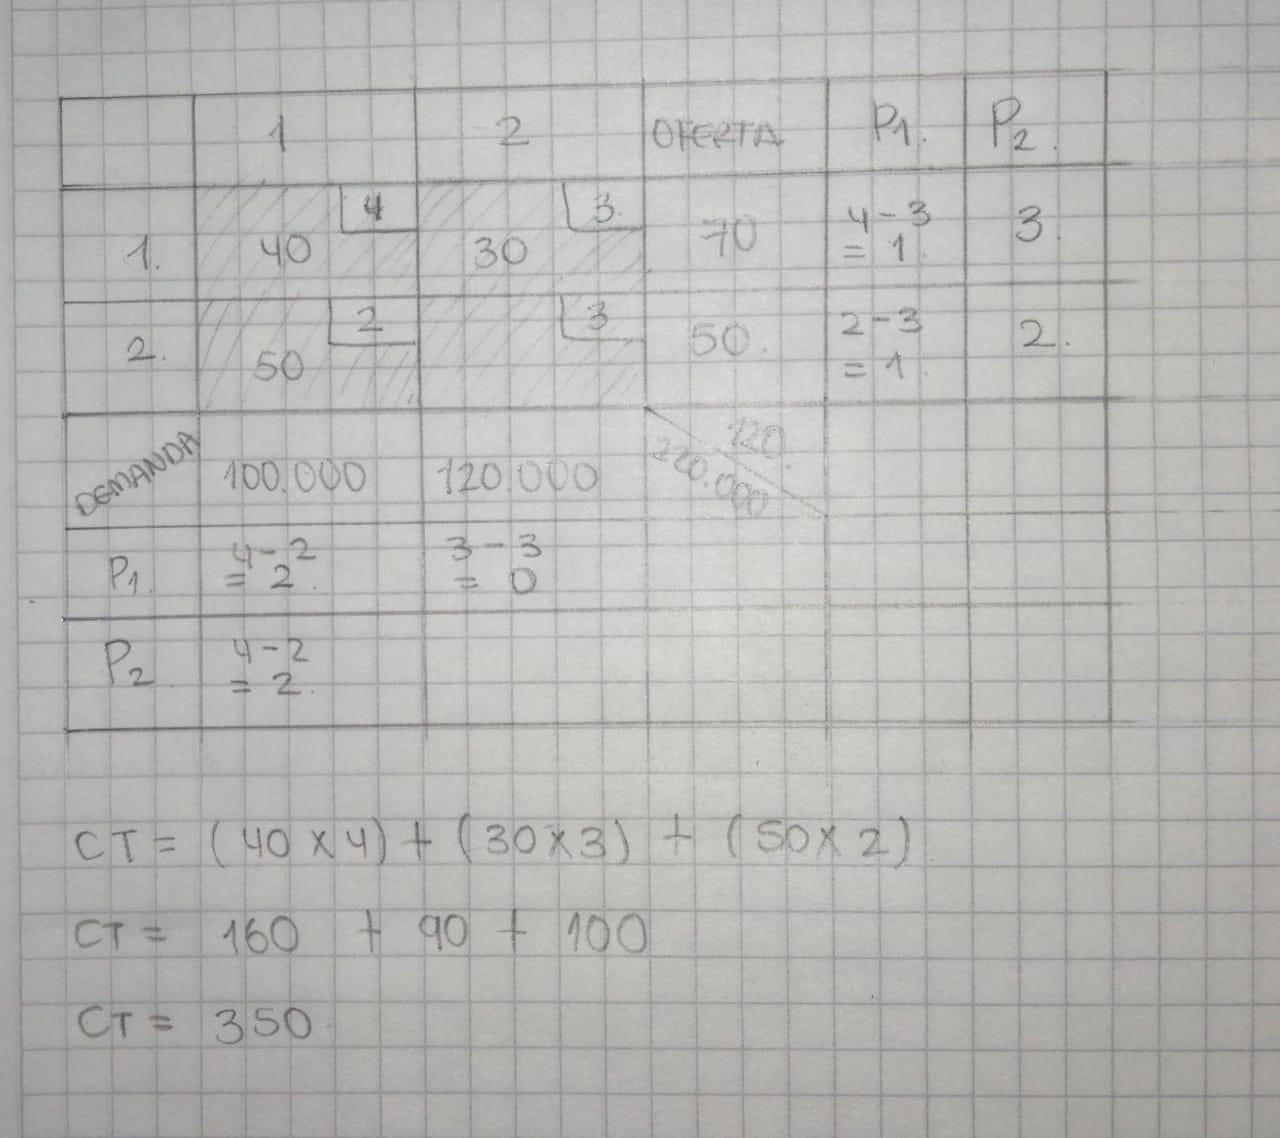 1 2 OFERTA P1. P2.
1. 40 4 30 3. 70 4-3 = 1. 3.
2. 50 2 3 50. 2-3 = 1. 2.
DEMANDA 100.000 120.000 120. 220.000
P1. 4-2 = 2. 3-3 = 0
P2. 4-2 = 2.
CT = (40 x 4) + (30 x 3) + (50 x 2)
CT = 160 + 90 + 100
CT = 350